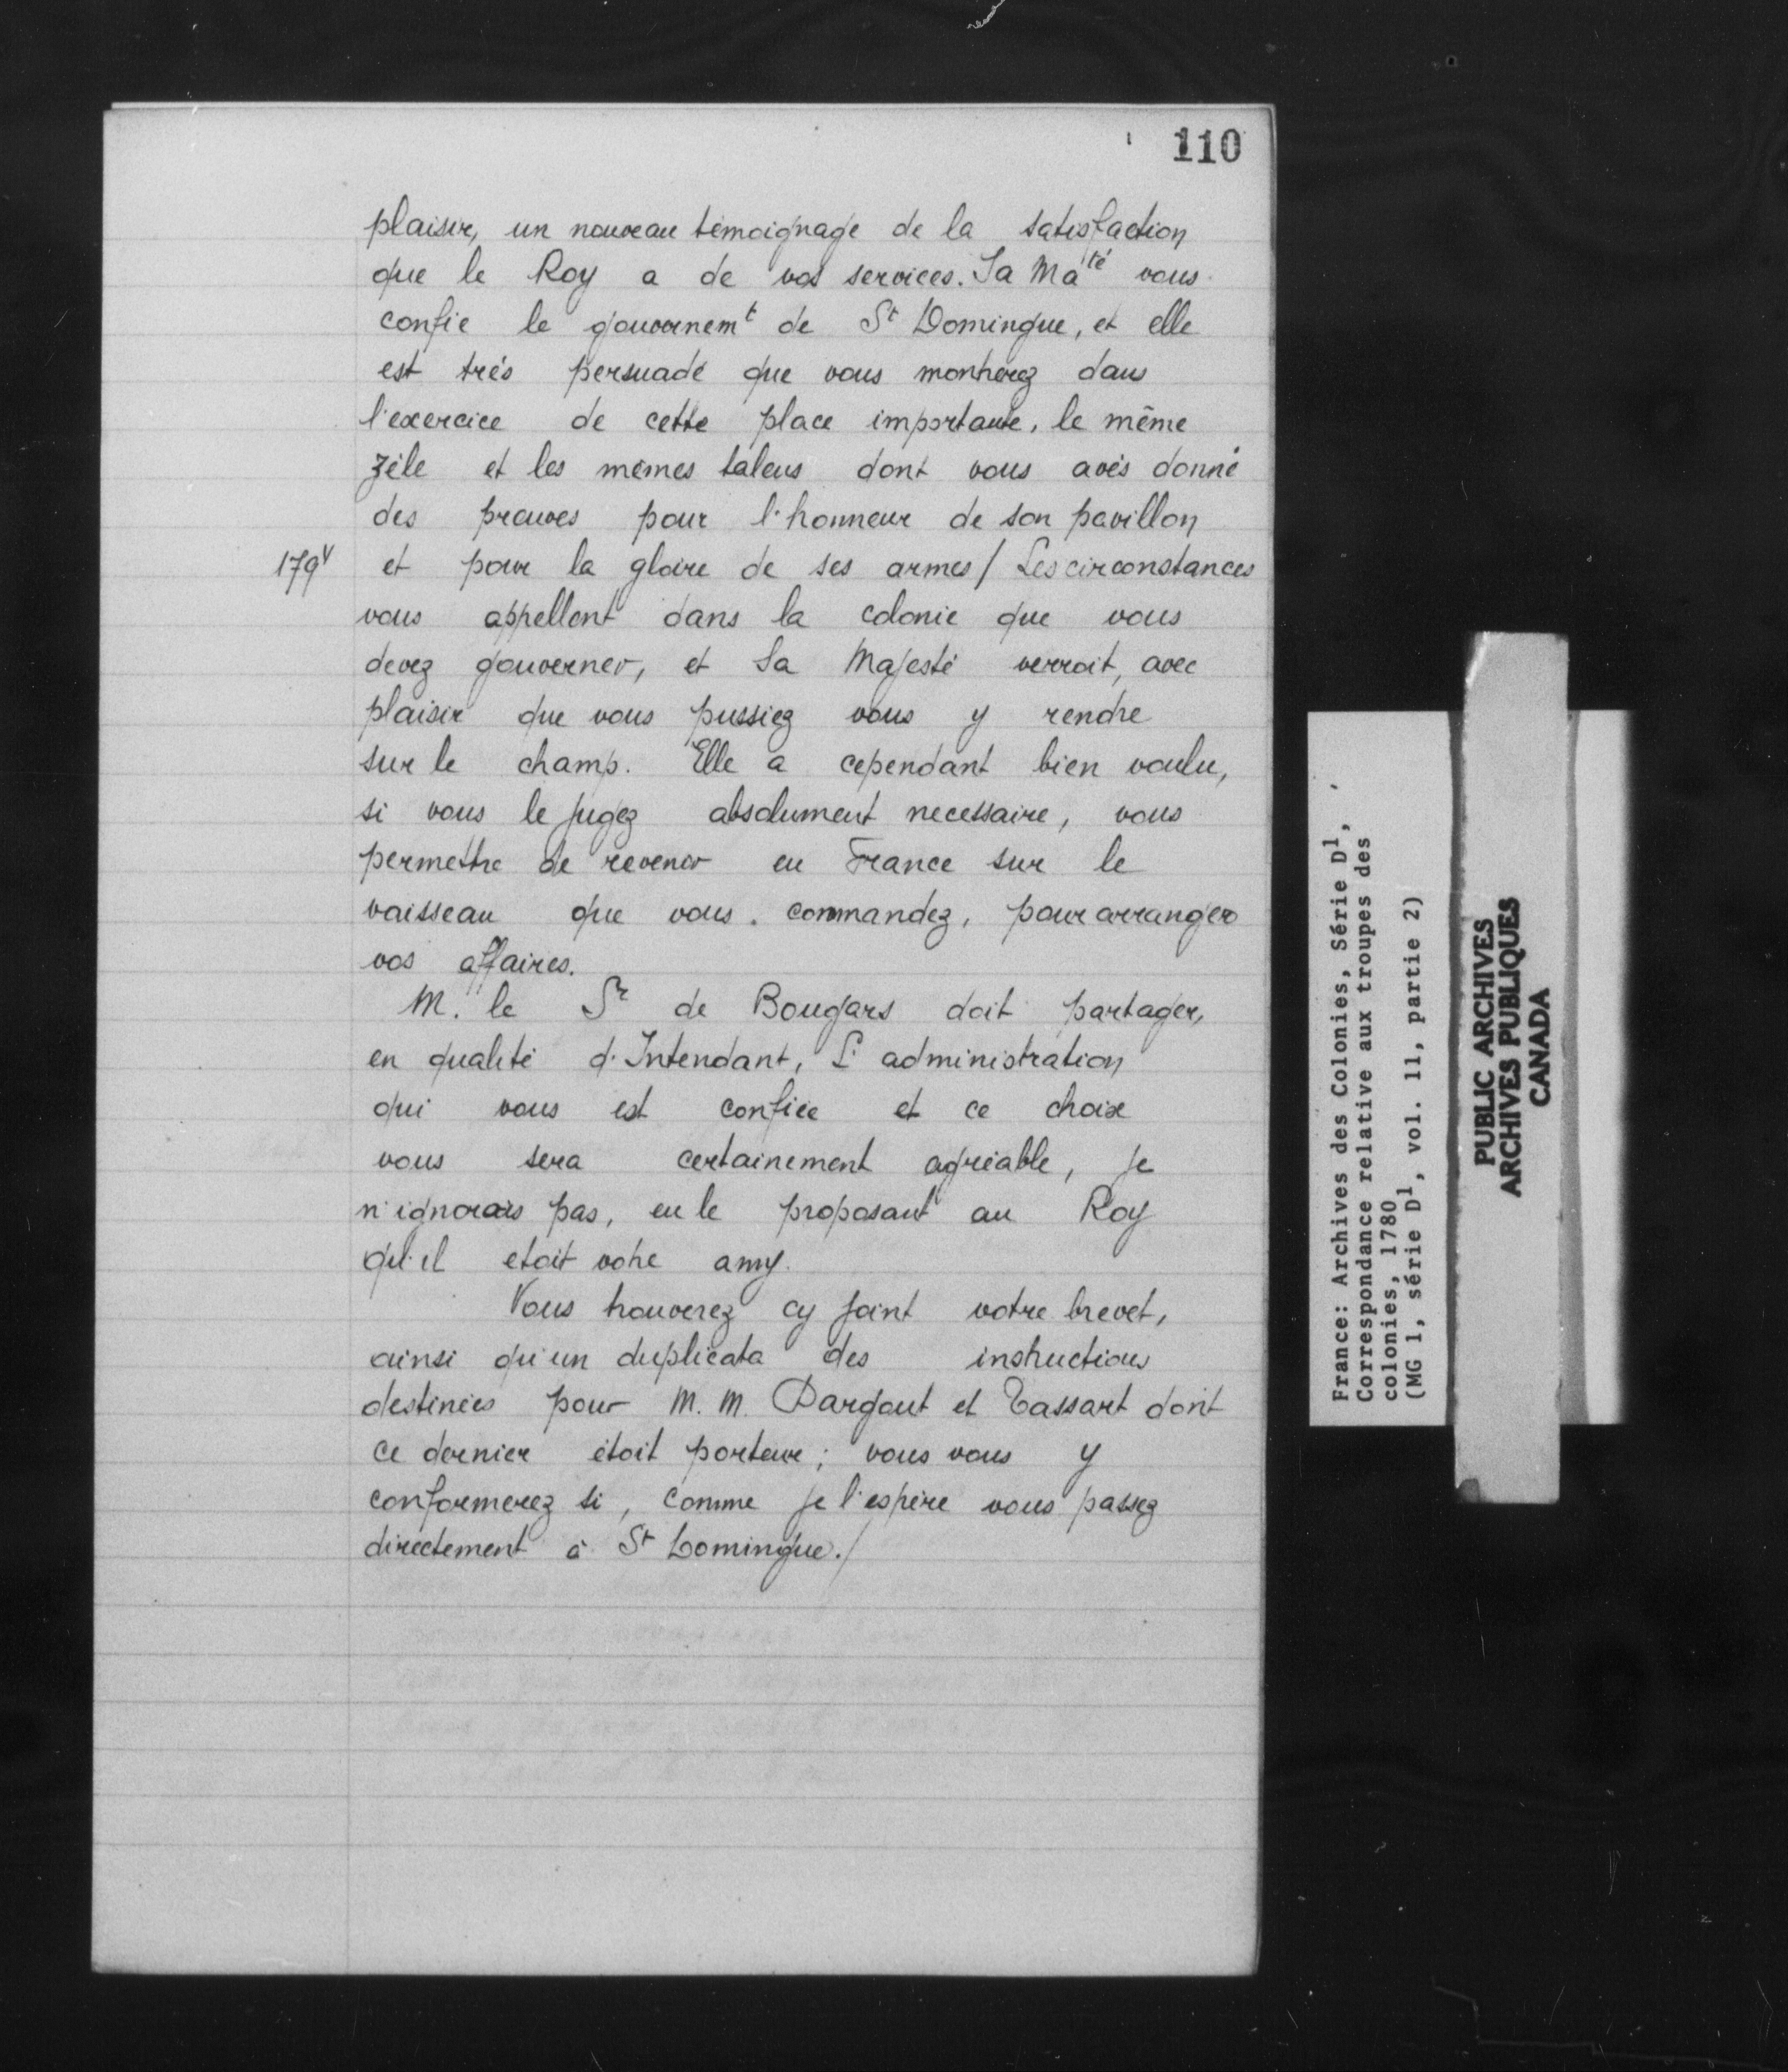 110
plaisir, un nouveau témoignage de la satisfaction
que le Roy a de vos services. Sa Ma^té vous
confie le gouvernem^t de S^t Domingue, et elle
est très persuadé que vous montrerez dans
l'exercice de cette place importante, le même
zèle et les mêmes talens dont vous avés donné
des preuves pour l'honneur de son pavillon
179^v et pour la gloire de ses armes / Les circonstances
vous appellent dans la colonie que vous
devez gouverner, et Sa Majesté verroit, avec
plaisir que vous pussiez vous y rendre
sur le champ. Elle a cependant bien voulu,
si vous le jugez absolument necessaire, vous
permettre de revenir en France sur le
vaisseau que vous commandez, pour arranger
vos affaires.
M. le S^r de Bongars doit partager,
en qualité d'Intendant, L'administration
qui vous est confiée et ce choix
vous sera certainement agréable, je
n'ignorais pas, en le proposant au Roy
qu'il etoit votre amy.
Vous trouverez cy joint votre brevet,
ainsi qu'un duplicata des instructions
destinées pour M. M. Dargout et Tassart dont
ce dernier étoit porteur; vous vous y
conformerez si, comme je l'espère vous passez
directement à S^t Domingue./
France: Archives des Colonies, Série D^1,
Correspondance relative aux troupes des
colonies, 1780
(MG 1, série D^1, vol. 11, partie 2)
PUBLIC ARCHIVES
ARCHIVES PUBLIQUES
CANADA